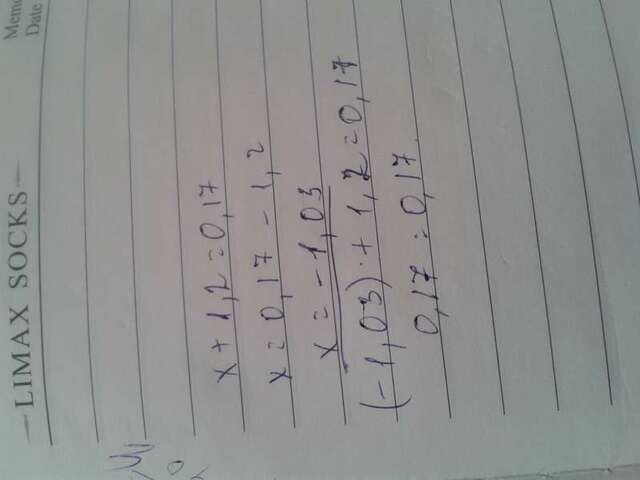 Memo
Date
—LIMAX SOCKS—
x + 1,2 = 0,17
x = 0,17 - 1,2
x = -1,03
(-1,03) + 1,2 = 0,17
0,17 = 0,17